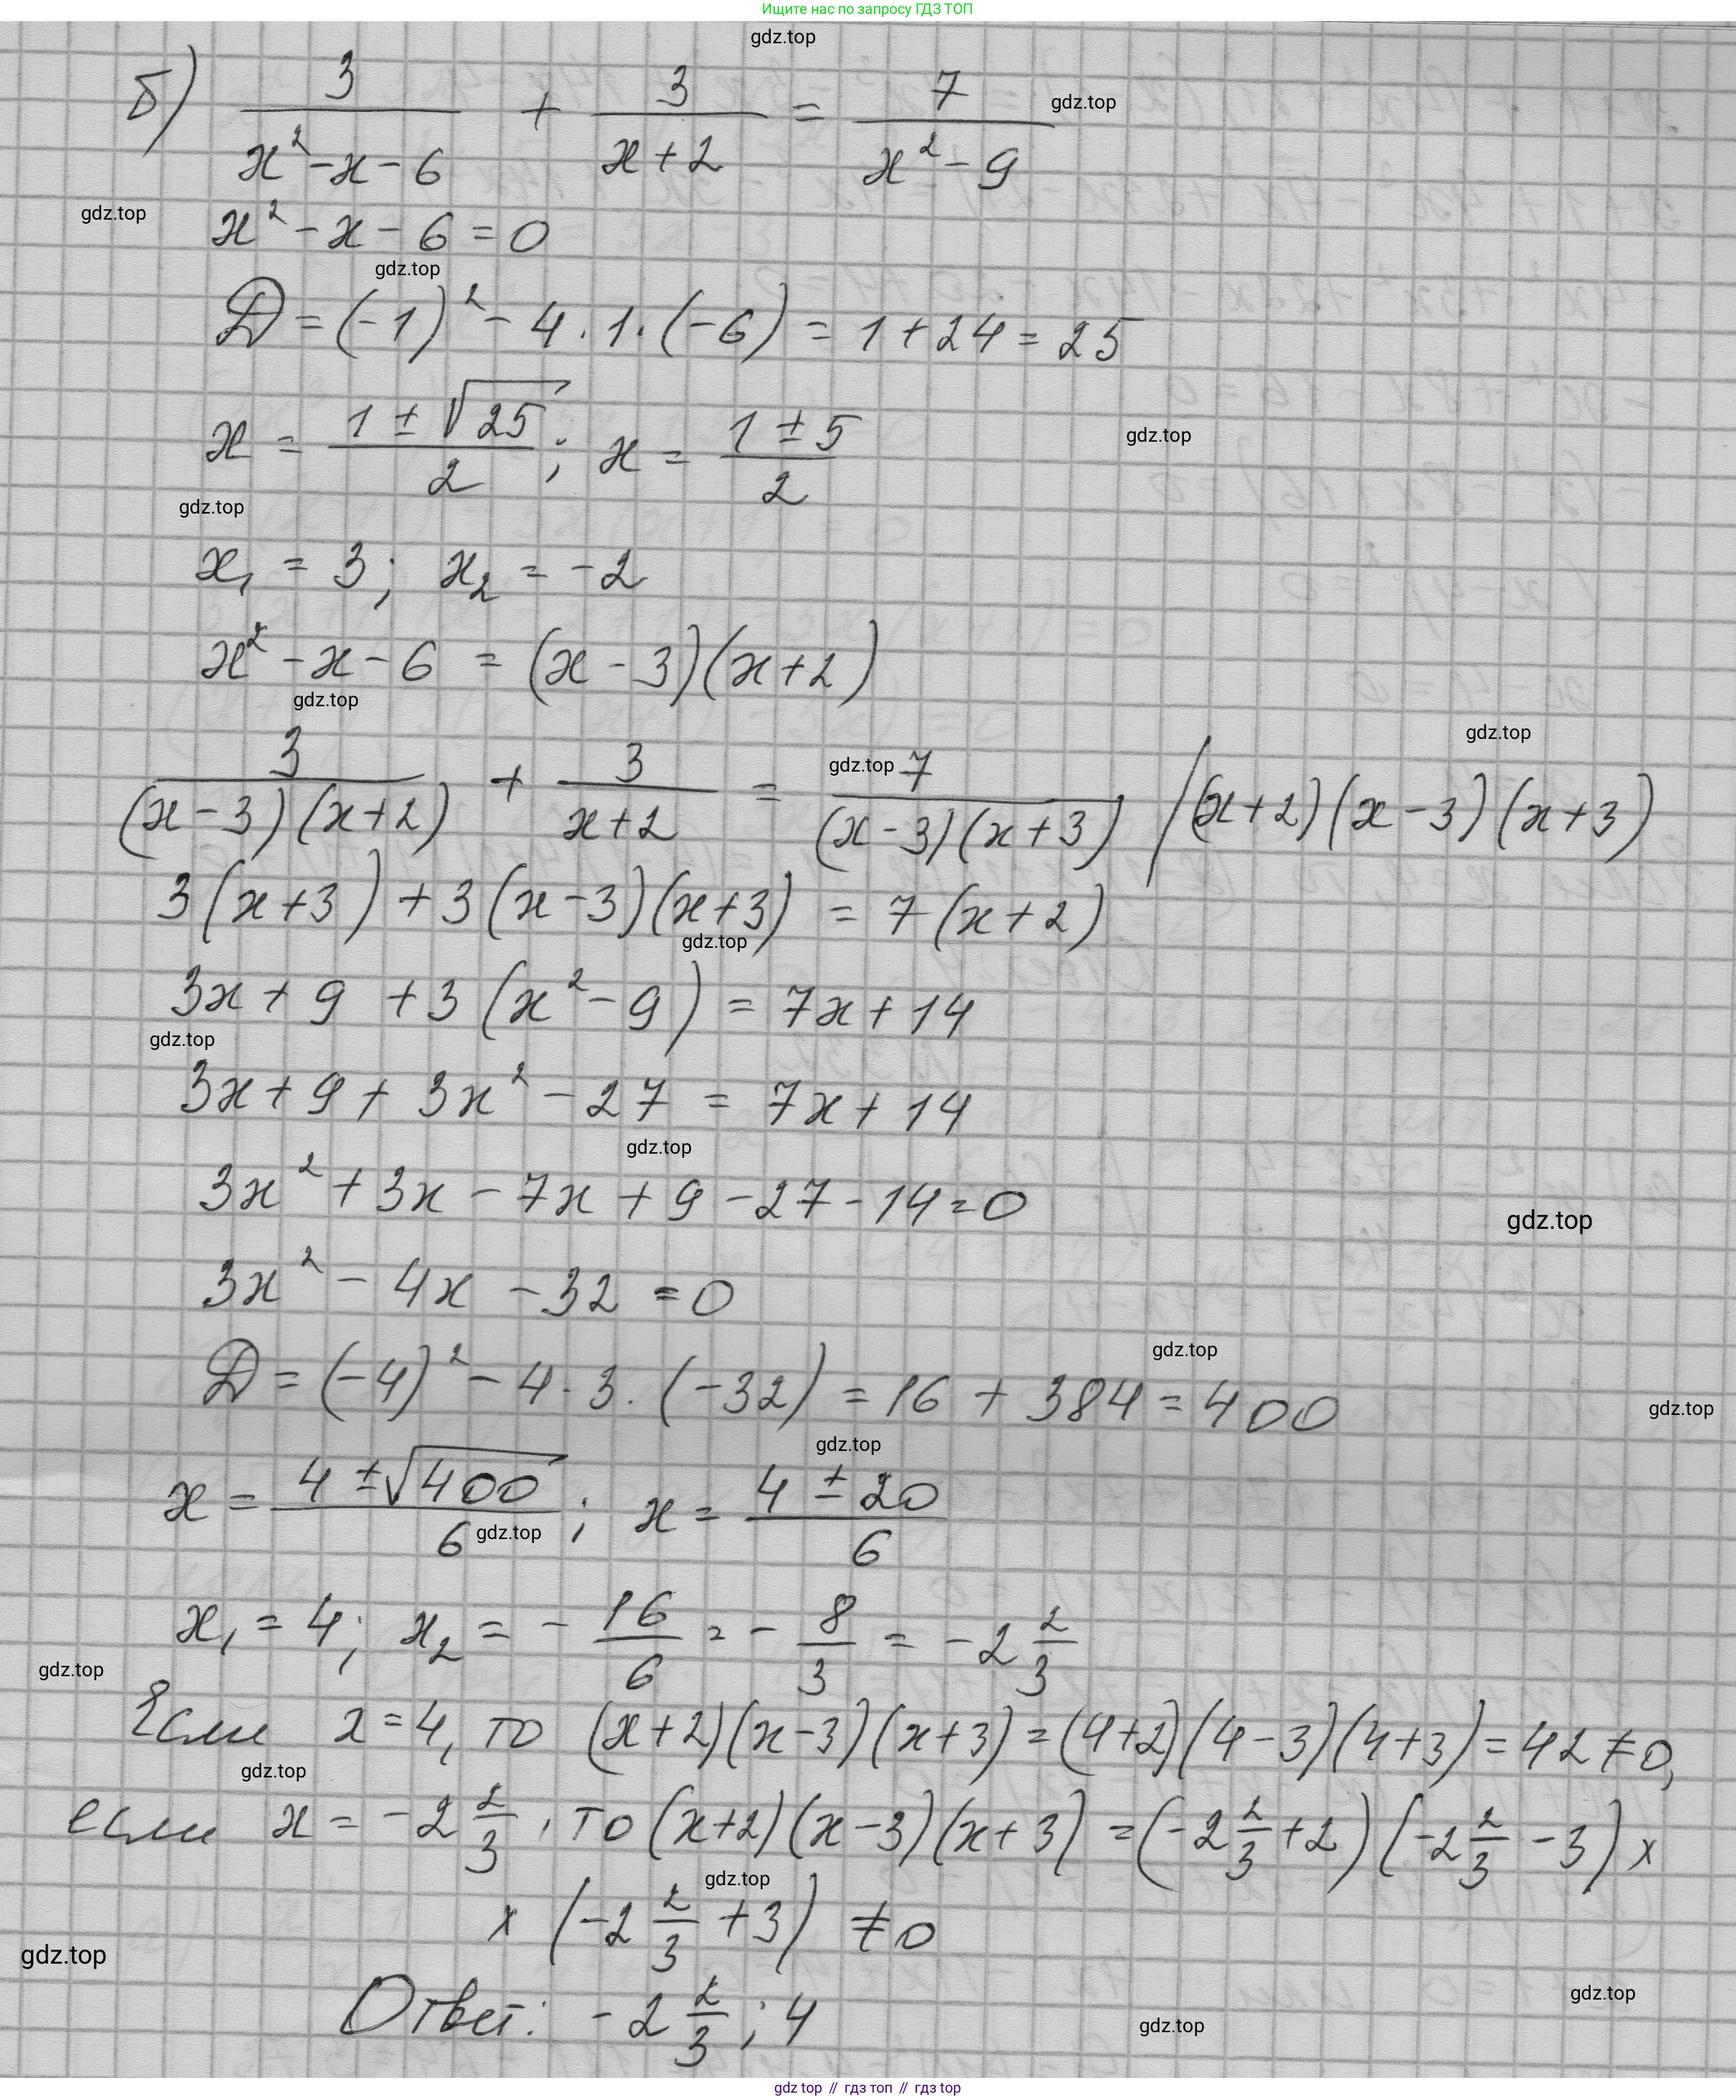 Ищите нас по запросу ГДЗ ТОП
gdz.top
б) 3/(x² - x - 6) + 3/(x + 2) = 7/(x² - 9) gdz.top
gdz.top x² - x - 6 = 0
gdz.top
D = (-1)² - 4 · 1 · (-6) = 1 + 24 = 25
x = (1 ± √25)/2 ; x = (1 ± 5)/2 gdz.top
gdz.top
x₁ = 3; x₂ = -2
x² - x - 6 = (x - 3)(x + 2)
gdz.top
gdz.top
3/((x - 3)(x + 2)) + 3/(x + 2) = gdz.top 7/((x - 3)(x + 3)) / (x + 2)(x - 3)(x + 3)
3(x + 3) + 3(x - 3)(x + 3) = 7(x + 2)
gdz.top
3x + 9 + 3(x² - 9) = 7x + 14
gdz.top
3x + 9 + 3x² - 27 = 7x + 14
gdz.top
3x² + 3x - 7x + 9 - 27 - 14 = 0
gdz.top
3x² - 4x - 32 = 0
gdz.top
D = (-4)² - 4 · 3 · (-32) = 16 + 384 = 400 gdz.top
gdz.top
x = (4 ± √400)/6 ; x = (4 ± 20)/6
gdz.top
x₁ = 4; x₂ = - 16/6 = - 8/3 = -2 2/3
gdz.top
Если x = 4, то (x + 2)(x - 3)(x + 3) = (4 + 2)(4 - 3)(4 + 3) = 42 ≠ 0,
gdz.top
если x = -2 2/3, то (x + 2)(x - 3)(x + 3) = (-2 2/3 + 2)(-2 2/3 - 3) ×
gdz.top
× (-2 2/3 + 3) ≠ 0
gdz.top
gdz.top
Ответ: -2 2/3 ; 4
gdz.top
gdz top // гдз топ // gdz top